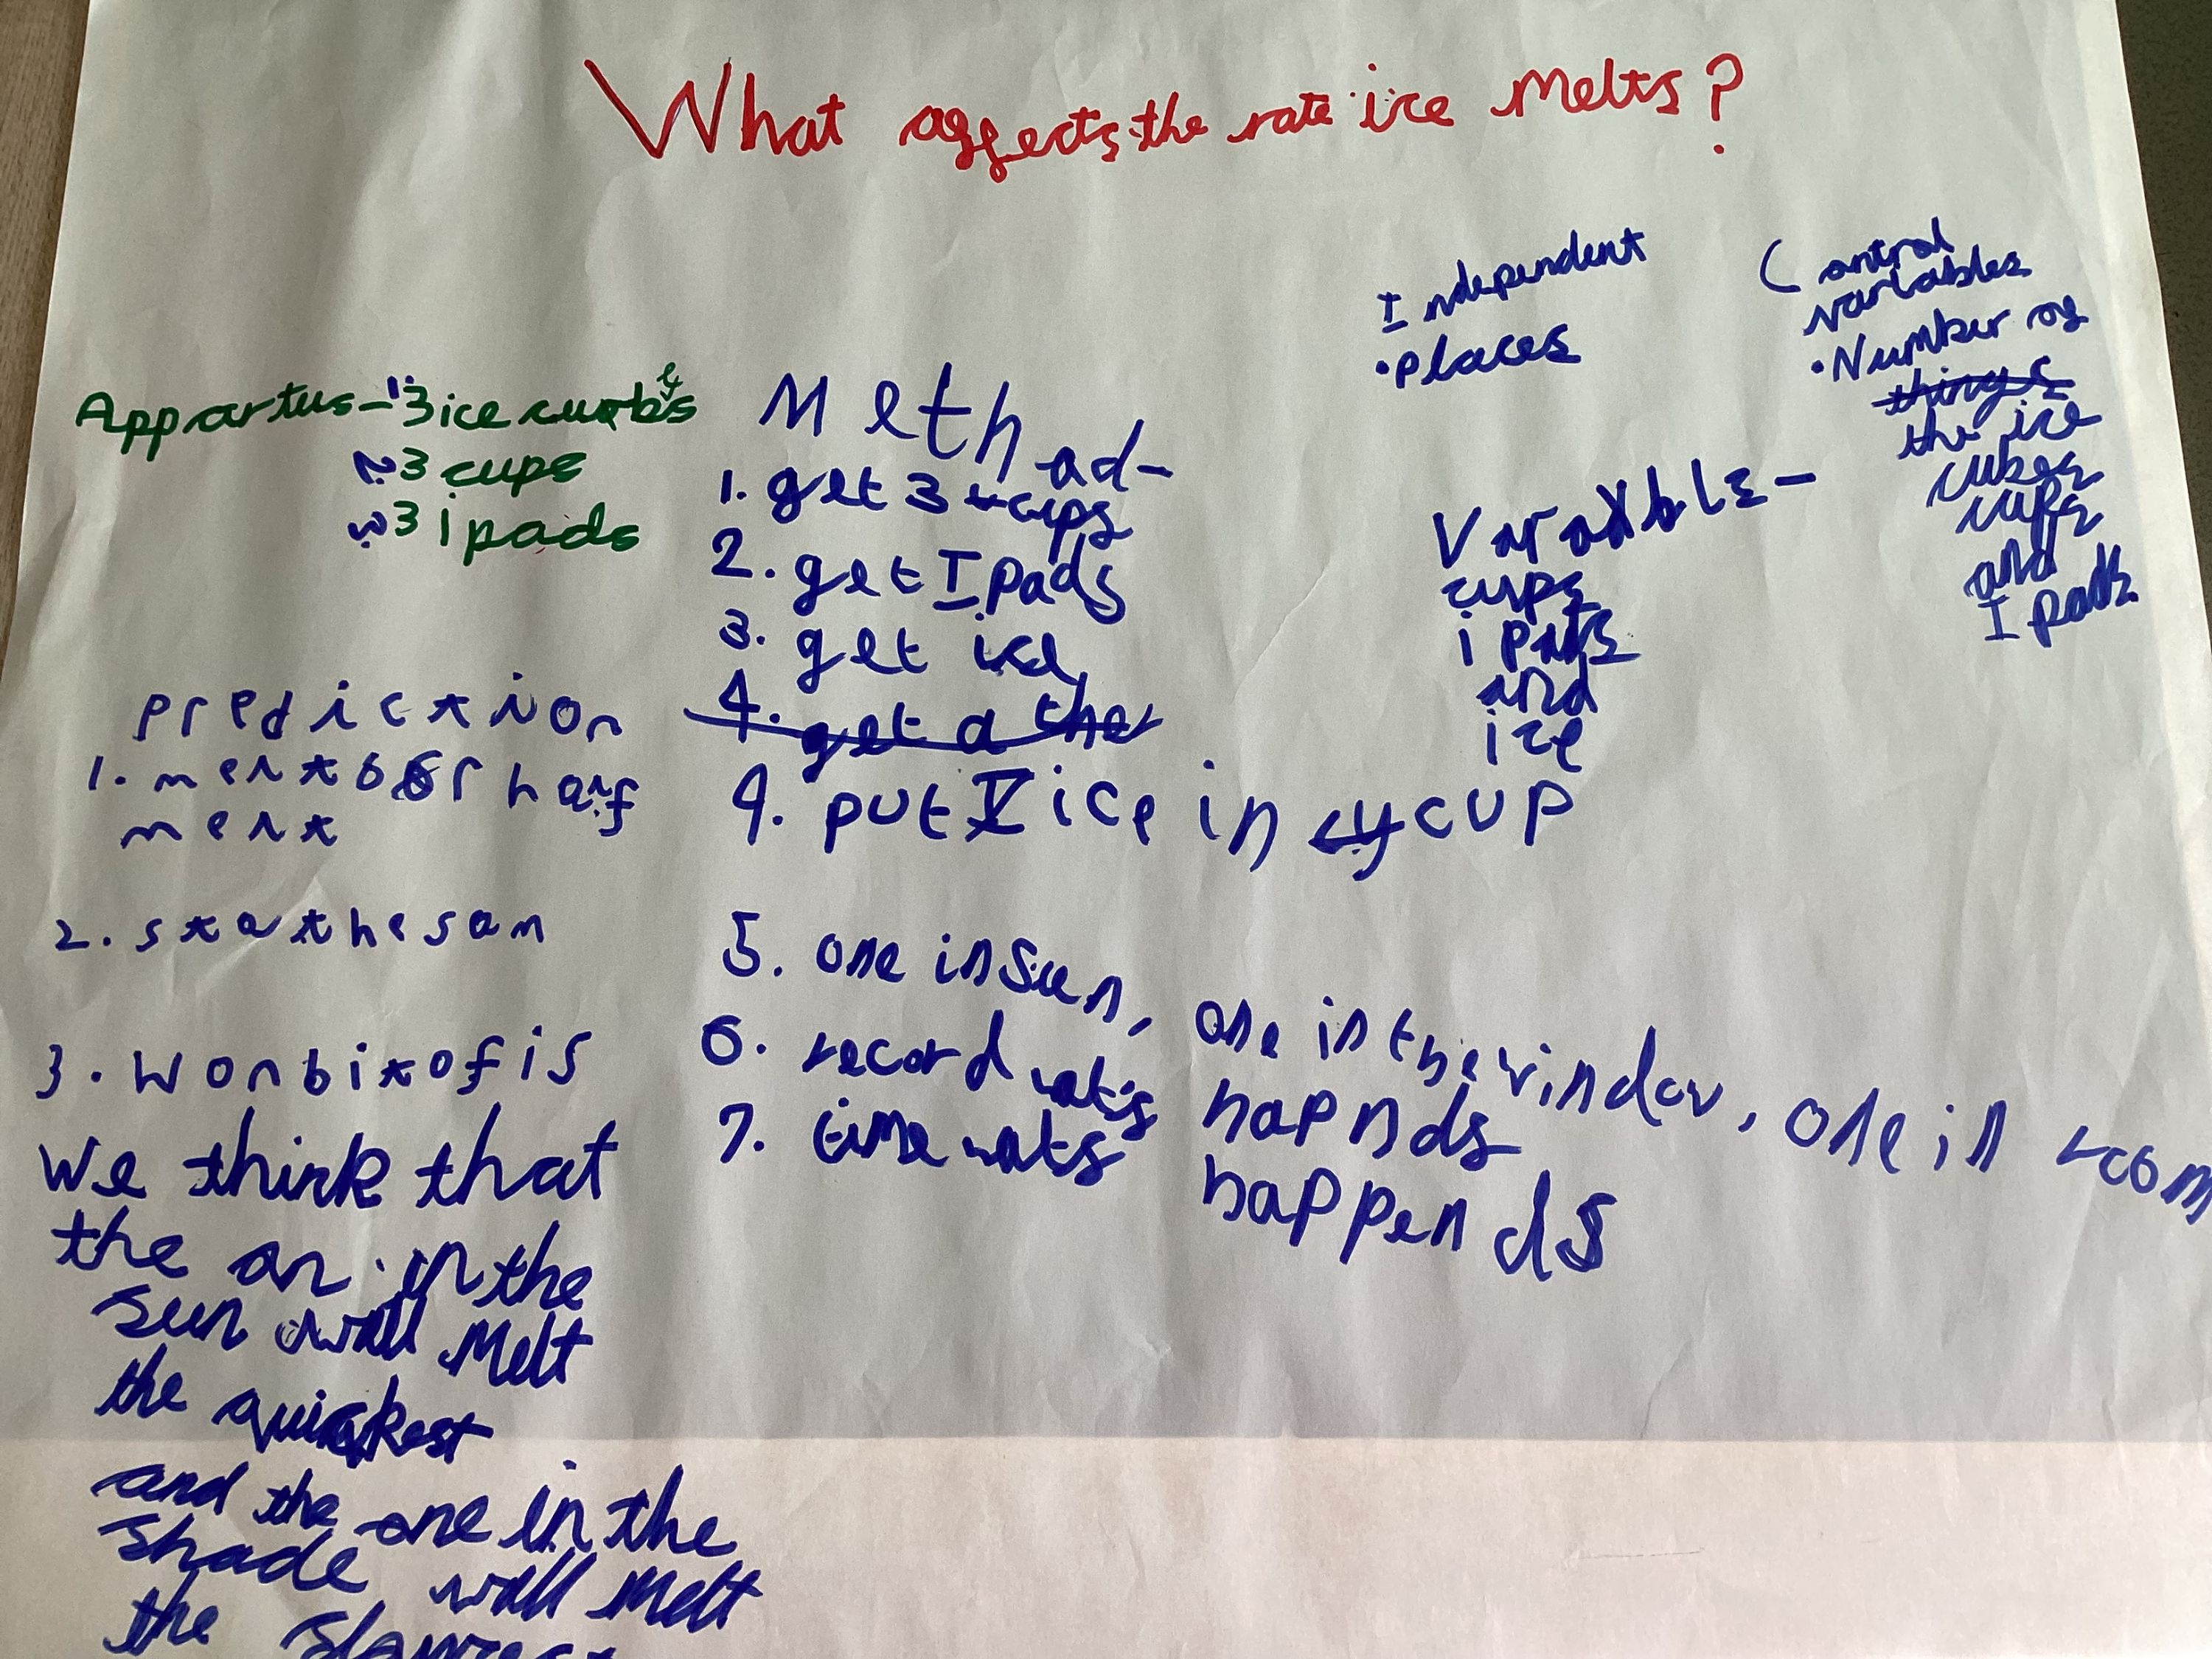 What affects the rate ice Melts?
Appartus - 1. 3 ice cubes
2. 3 cups
3. 3 ipads
prediction
1. melt or half
melt
2. sta the sam
3. won bit of is
We think that
the on in the
sun will Melt
the quickest
and the one in the
shade will melt
the slowest
Methad-
1. get 3 cups
2. get Ipads
3. get ice
4. get a ther
4. put ice in cup
5. one in sun, one in the window, one in room
6. record wat's hapnds
7. time wats happends
Independent
• places
Varaible-
cups
ipads
and
ice
Control
variables
• Number of
things
the ice
cubes
cups
and
Ipads